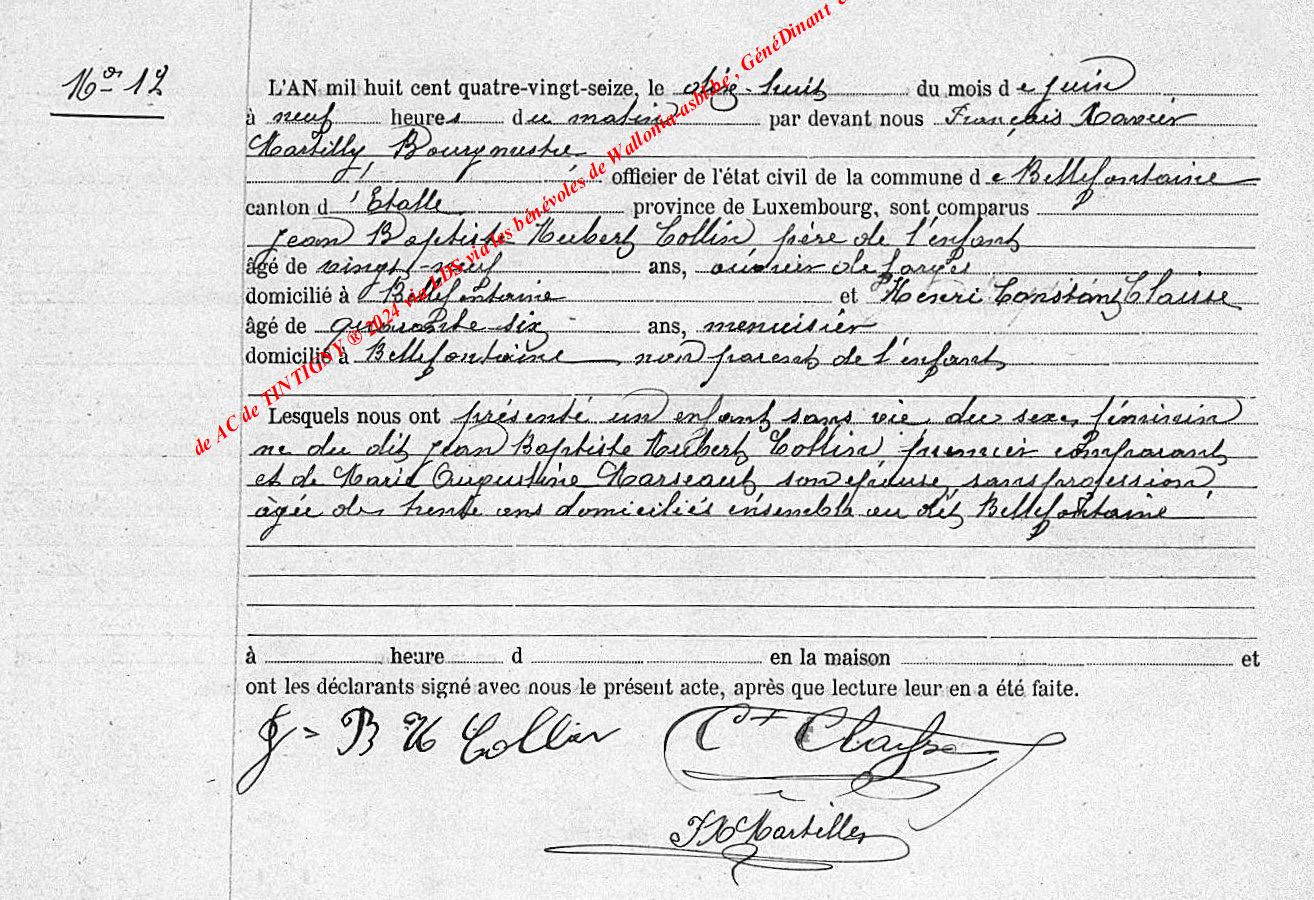 No 12
L'AN mil huit cent quatre-vingt-seize, le dix-huit du mois de juin
à neuf heures du matin par devant nous François Xavier
Martilly, Bourgmestre
officier de l'état civil de la commune de Bellefontaine
canton d'Etalle province de Luxembourg, sont comparus
Jean Baptiste Hubert Collin, père de l'enfant
âgé de vingt-neuf ans, ouvrier de forges
domicilié à Bellefontaine et Henri Constant Clausse
âgé de quarante-six ans, menuisier
domicilié à Bellefontaine, non parent de l'enfant
Lesquels nous ont présenté un enfant sans vie, du sexe féminin
né du dit Jean Baptiste Hubert Collin premier comparant
et de Marie Augustine Marseaut son épouse, sans profession,
âgée de trente ans domiciliés ensemble au dit Bellefontaine
à heure d en la maison et
ont les déclarants signé avec nous le présent acte, après que lecture leur en a été faite.
J-B H Collin Ct Clausse
FX Martilly
de AC de TINTIGNY ® 2024 via LDS via les bénévoles de Wallonia-asbl.be, GénéDinant